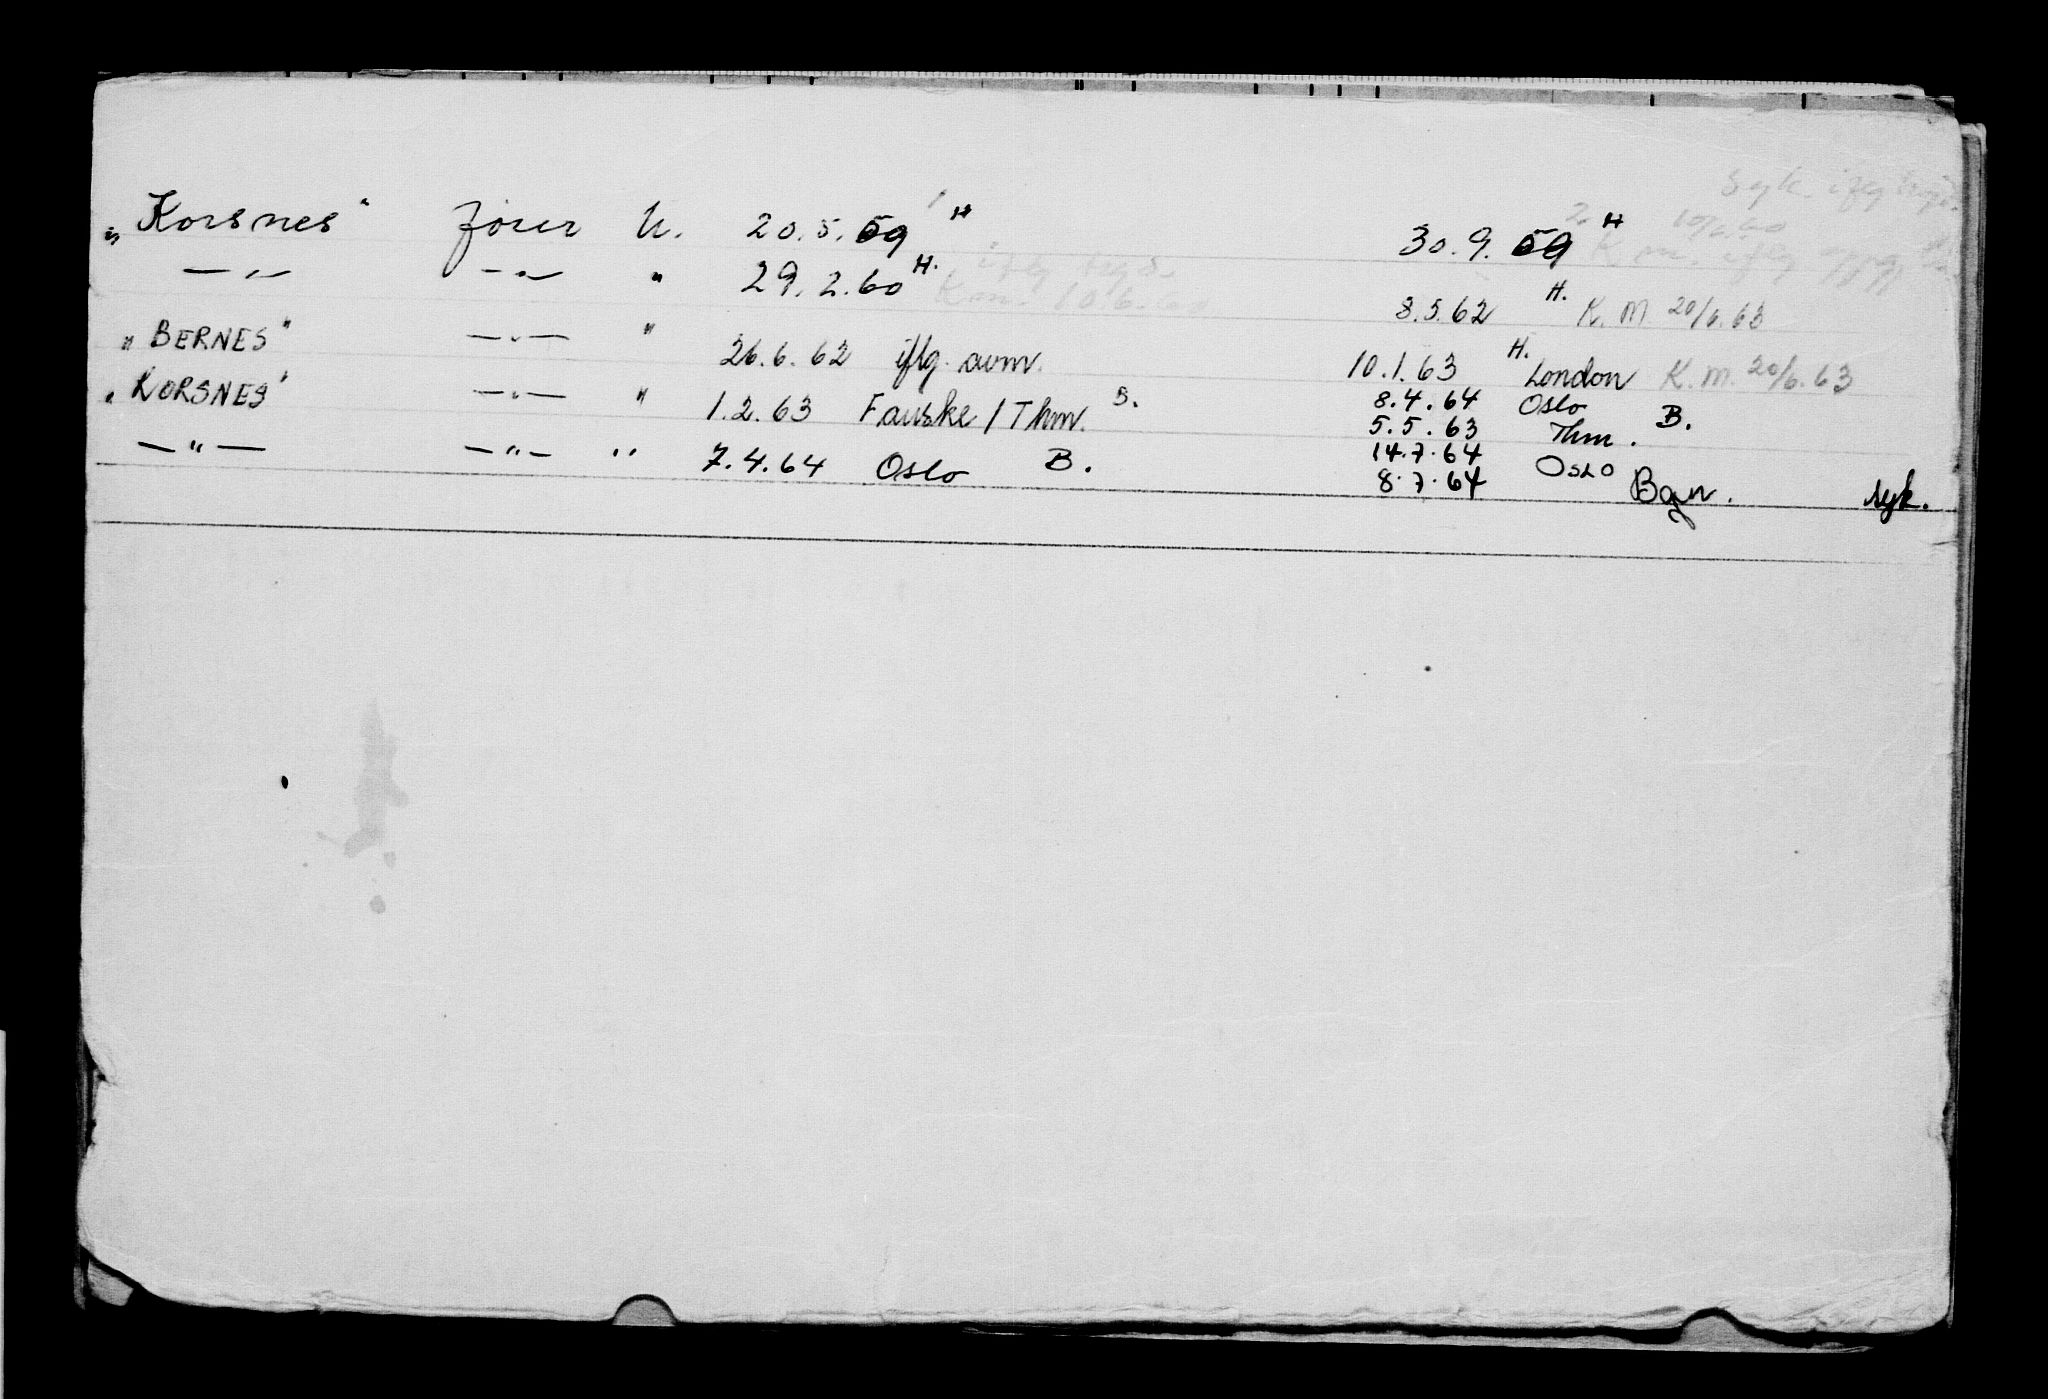 „Korsnes" fører U. 20.5.59 H 30.9.59 H
— „ — — „ — " 29.2.60 H. K.m. 10.6.60 8.5.62 H. K.M 20/6.63
„BERNES" — „ — " 26.6.62 iflg. avm. 10.1.63 H. London K.m. 20/6.63
„KORSNES" — „ — " 1.2.63 Fauske / Thm. B. 8.4.64 Oslo B.
5.5.63 Thm.
— " — — " — " 7.4.64 Oslo B. 14.7.64 Oslo
8.7.64 Bgn. syk.